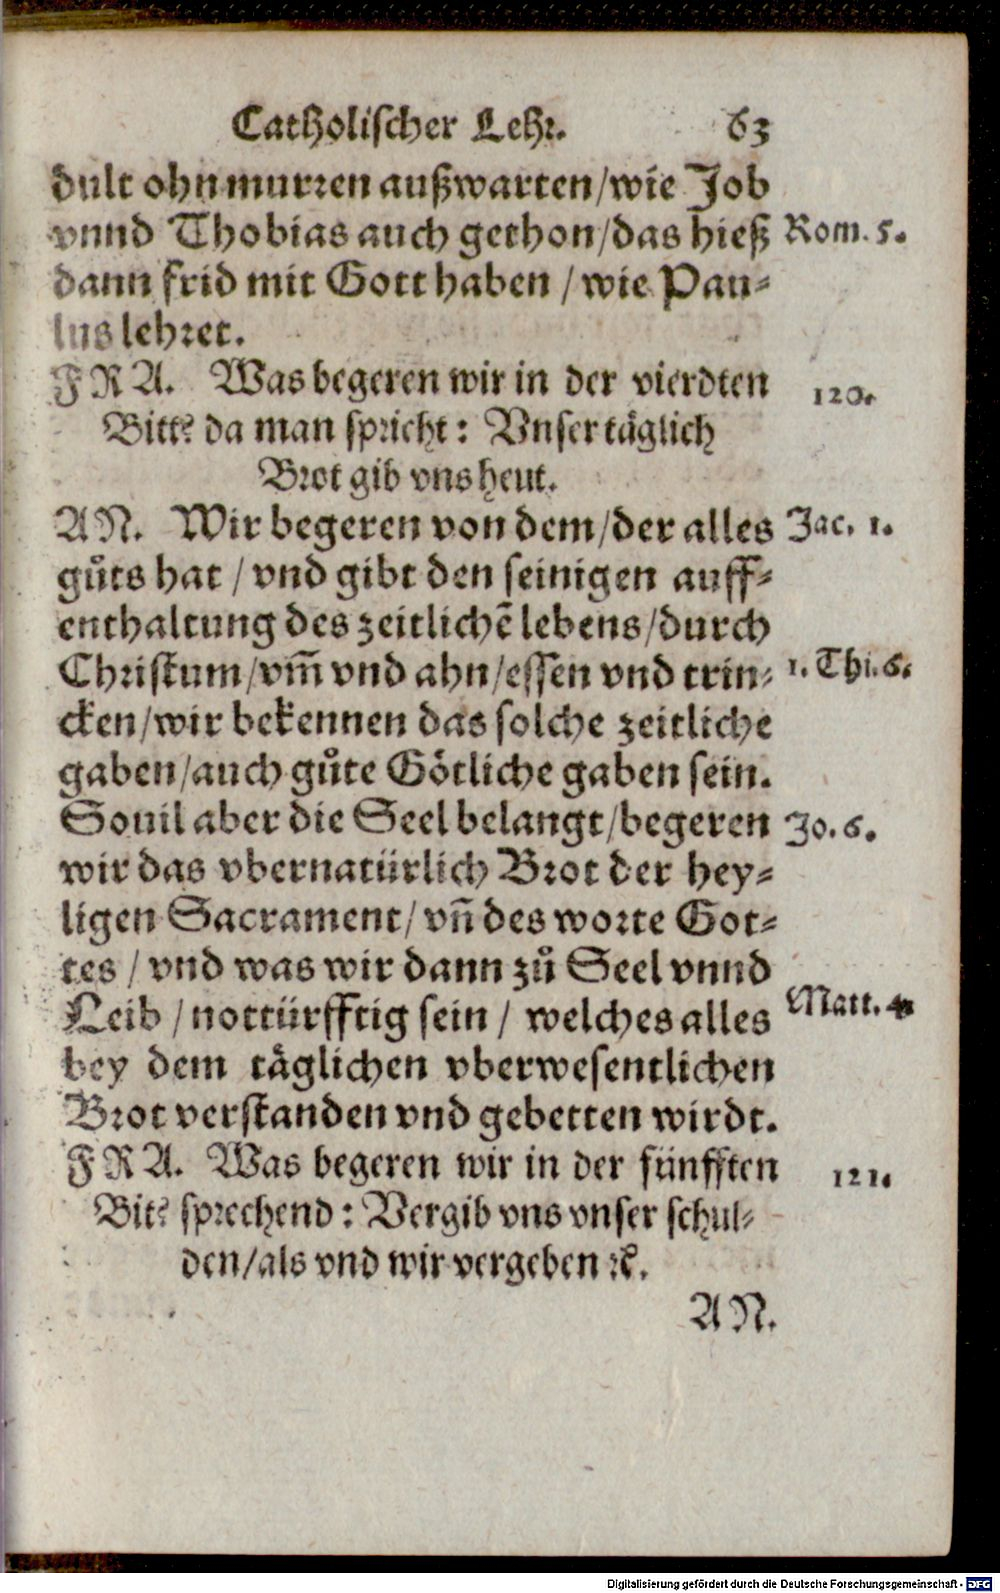 Catholischer Lehr. 63
dult ohn murren außwarten/wie Job
vnnd Thobias auch gethon/das hieß Rom. 5.
dann frid mit Gott haben / wie Pau-
lus lehret.
FRA. Was begeren wir in der vierdten 120.
Bitt? da man spricht: Vnser täglich
Brot gib vns heut.
AN. Wir begeren von dem/der alles Jac. 1.
gůts hat / vnd gibt den seinigen auff-
enthaltung des zeitlichẽ lebens/durch
Christum/vm̃ vnd ahn/essen vnd trin- 1. Thi. 6.
cken/wir bekennen das solche zeitliche
gaben/auch gůte Götliche gaben sein.
Souil aber die Seel belangt/begeren Jo. 6.
wir das vbernatürlich Brot der hey-
ligen Sacrament/ vñ des worts Got-
tes / vnd was wir dann zů Seel vnnd
Leib / nottürfftig sein / welches alles Matt. 4
bey dem täglichen vberwesentlichen
Brot verstanden vnd gebetten wirdt.
FRA. Was begeren wir in der fünfften 121.
Bit? sprechend: Vergib vns vnser schul-
den/als vnd wir vergeben ꝛc.
AN.
Digitalisierung gefördert durch die Deutsche Forschungsgemeinschaft - DFG